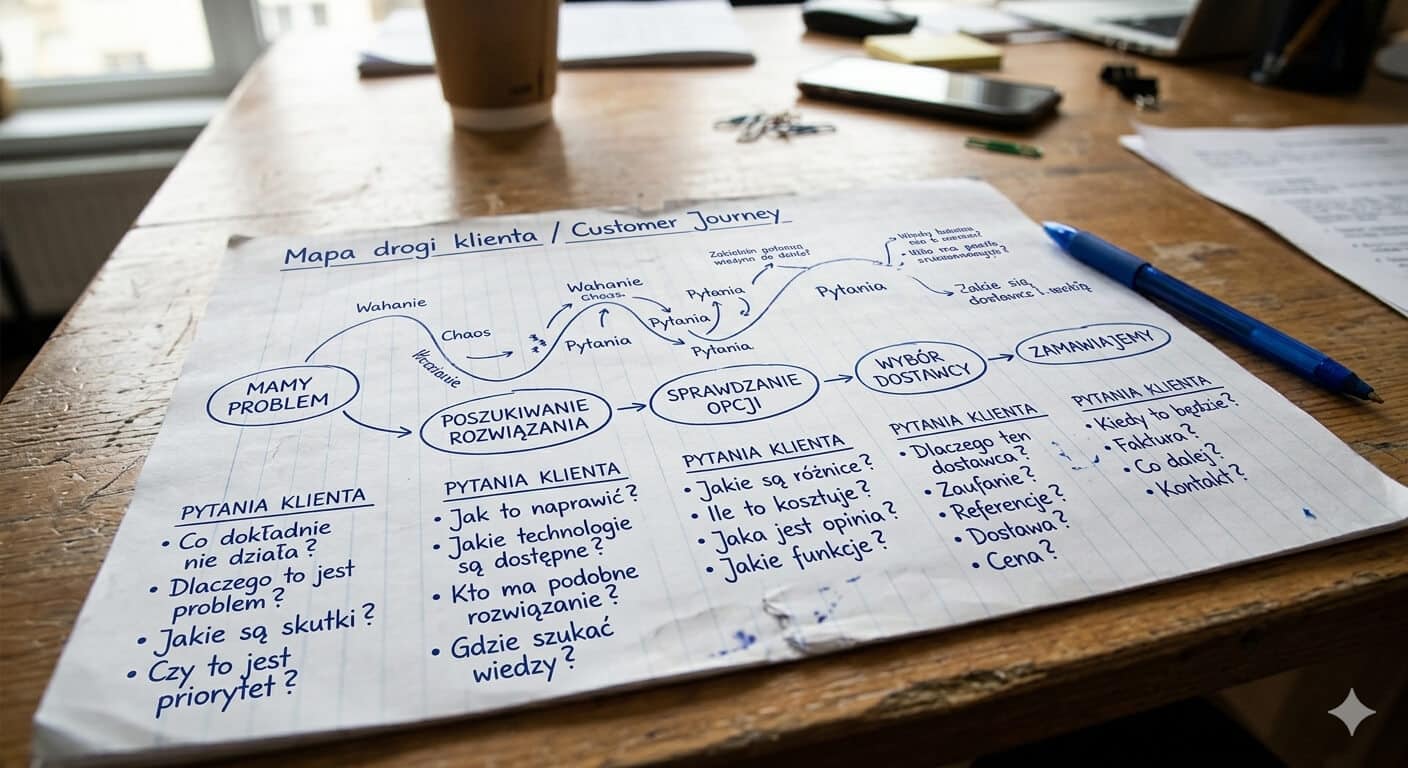 Mapa drogi klienta / Customer Journey
Wahanie
Chaos
Wahanie
Chaos.
Pytania
Pytania
Pytania
Pytania
Pytania
MAMY
PROBLEM
POSZUKIWANIE
ROZWIĄZANIA
SPRAWDZANIE
OPCJI
WYBÓR
DOSTAWCY
ZAMAWIAJEMY
PYTANIA KLIENTA
• Co dokładnie
nie działa?
• Dlaczego to jest
problem?
• Jakie są skutki?
• Czy to jest
priorytet?
PYTANIA KLIENTA
• Jak to naprawić?
• Jakie technologie
są dostępne?
• Kto ma podobne
rozwiązanie?
• Gdzie szukać
wiedzy?
PYTANIA KLIENTA
• Jakie są różnice?
• Ile to kosztuje?
• Jaka jest opinia?
• Jakie funkcje?
PYTANIA KLIENTA
• Dlaczego ten
dostawca?
• Zaufanie?
• Referencje?
• Dostawa?
• Cena?
PYTANIA KLIENTA
• Kiedy to będzie?
• Faktura?
• Co dalej?
• Kontakt?